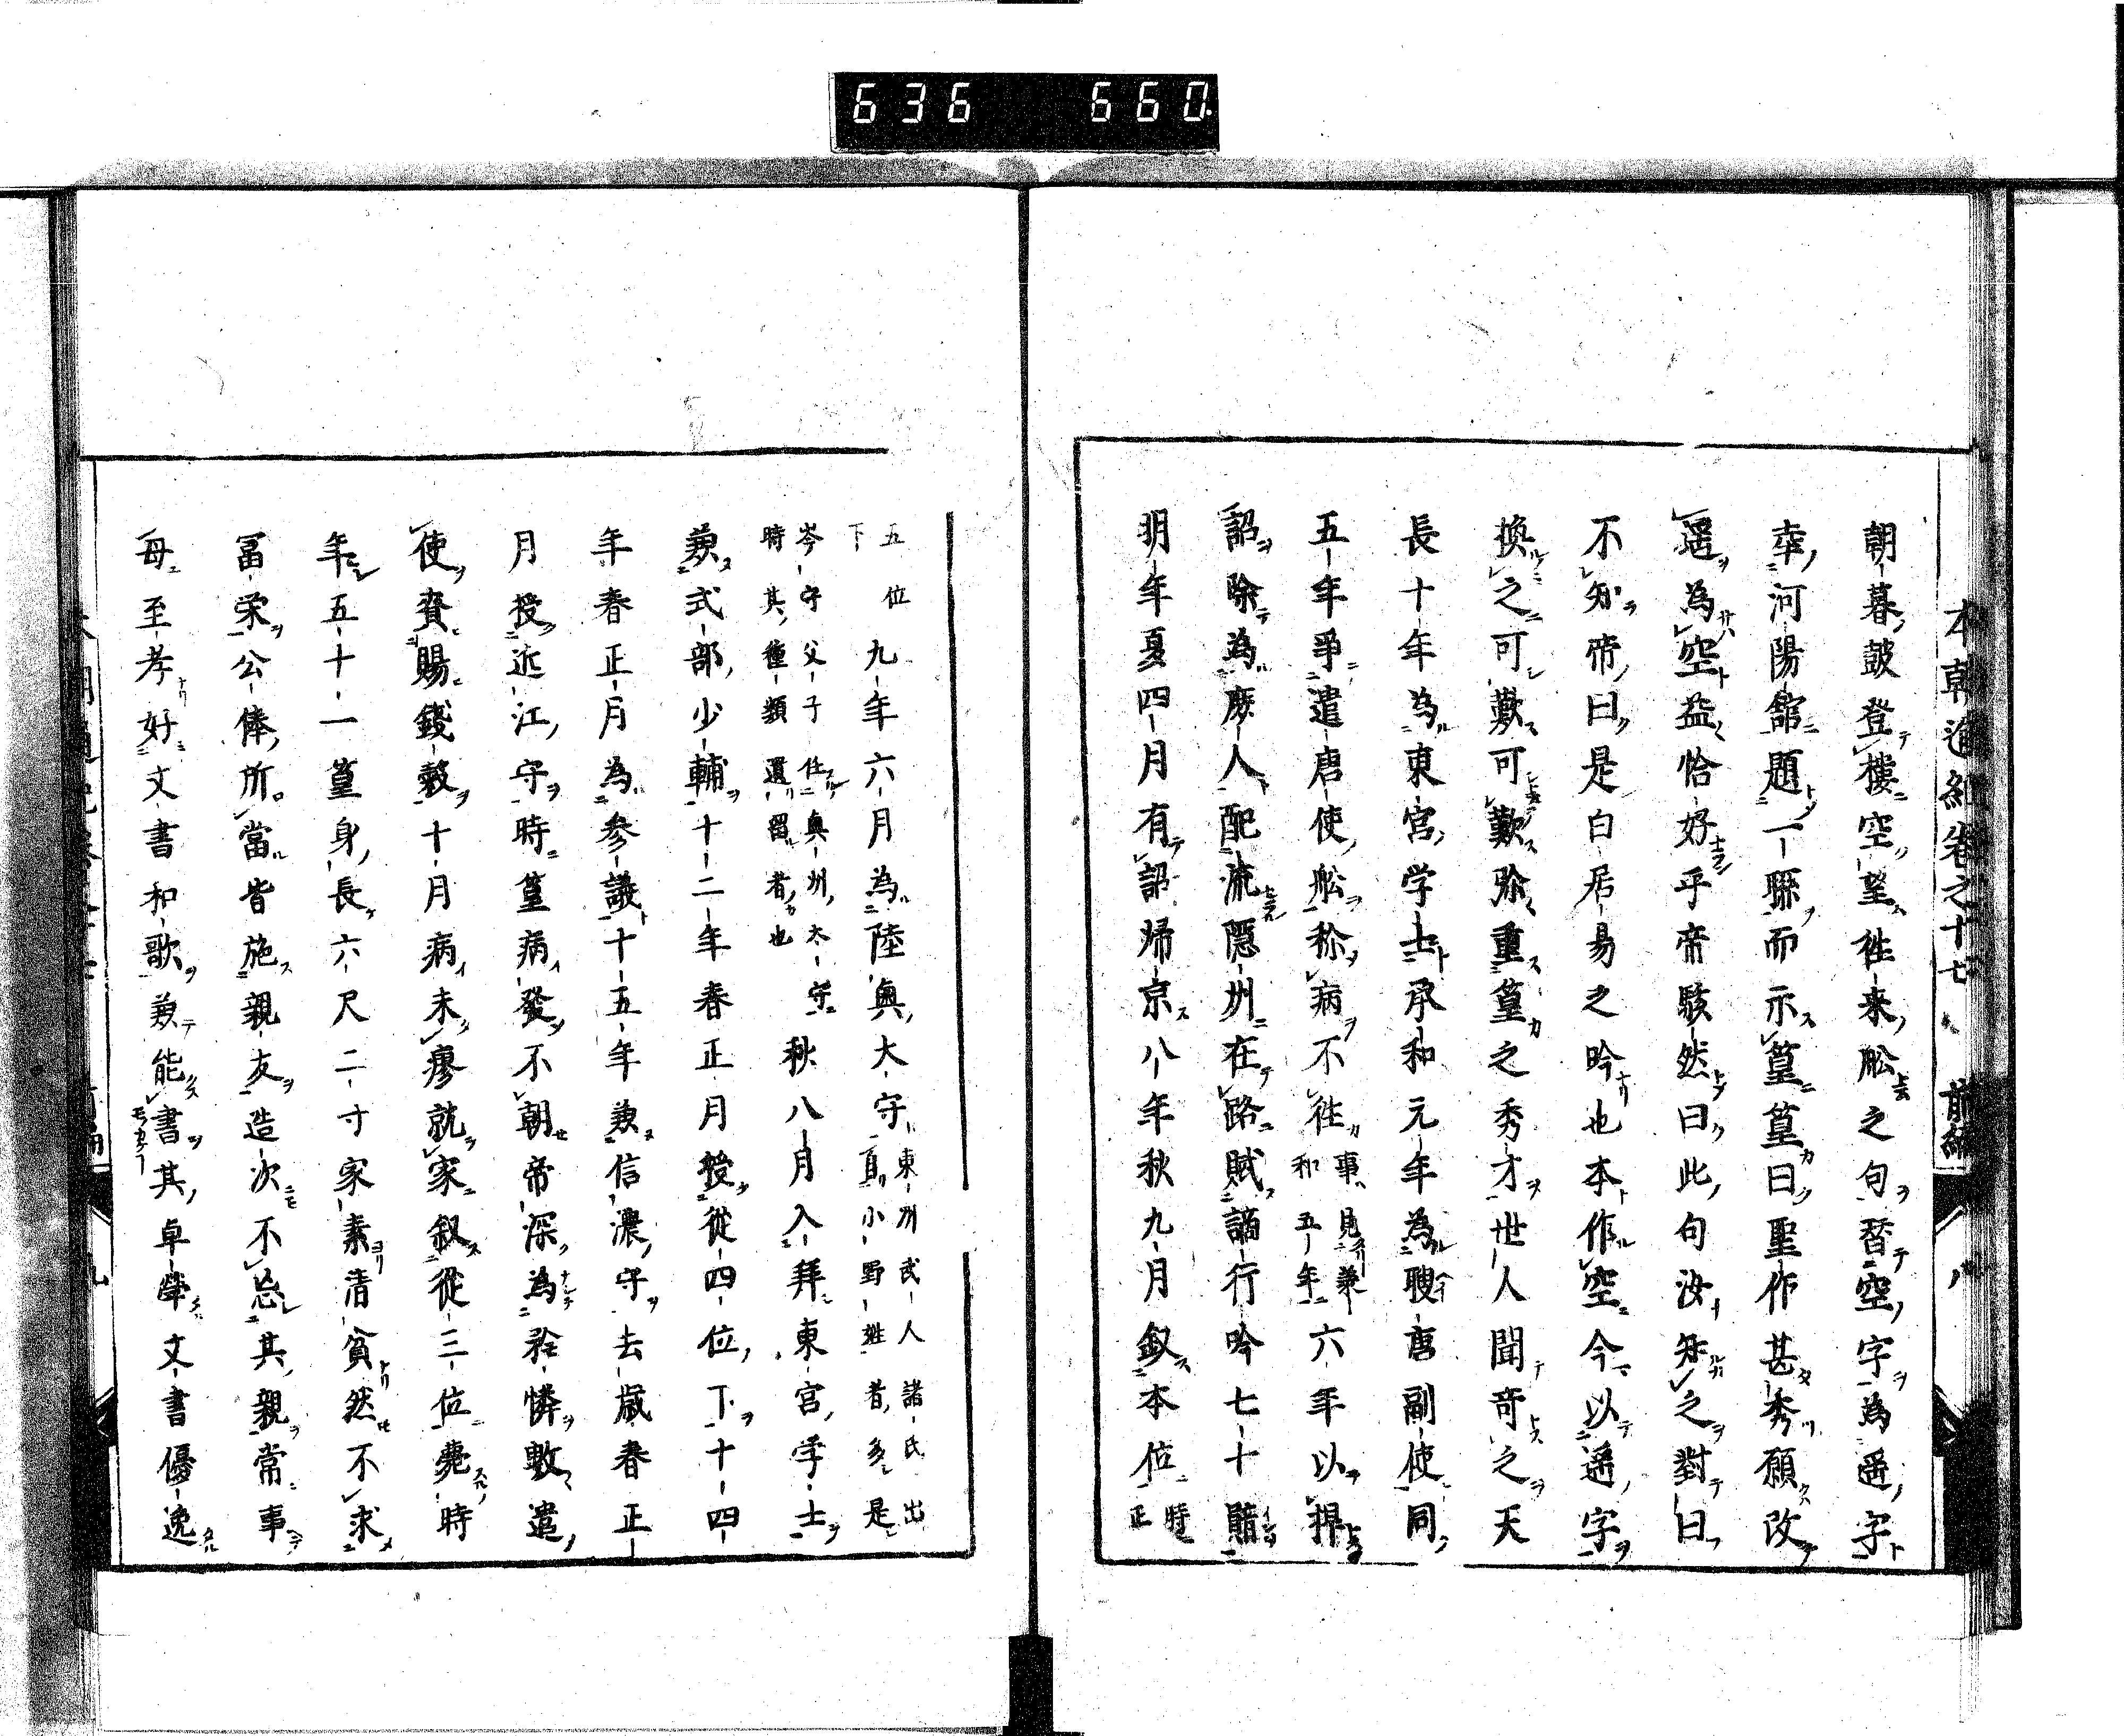 636 660
本朝通紀巻之十七 前編 八
朝暮鼓登樓空望往来舩之句替空字為遥字
幸河陽舘題一聯而示篁篁曰聖作甚秀願改
遥為空益恰好乎帝駭然曰此句汝知之對曰
不知帝曰是白居易之吟也本作空今以遥字
換之可歎可歎弥重篁之秀才世人聞奇之天
長十年為東宮学士承和元年為聘唐副使同
五年爭遣唐使舩称病不往事見兼
和五年六年以捍
詔除為庶人配流隠州在路賦謫行吟七十韻
明年夏四月有詔帰京八年秋九月叙本位時
正
五位
下九年六月為陸奥大守東州武人諸氏出
自小野姓者多是
岑守父子任奥州太守
時其種類還留者也秋八月入拜東宮学士
兼式部少輔十二年春正月授從四位下十四
年春正月為参議十五年兼信濃守去歳春正
月授近江守時篁病發不朝帝深為矜憐數遣
使賚賜錢穀十月病未瘳就家叙從三位薨時
年五十一篁身長六尺二寸家素清貧然不求
冨栄公俸所當皆施親友造次不忘其親常事
母至孝好文書和歌兼能書其卓犖文書優逸